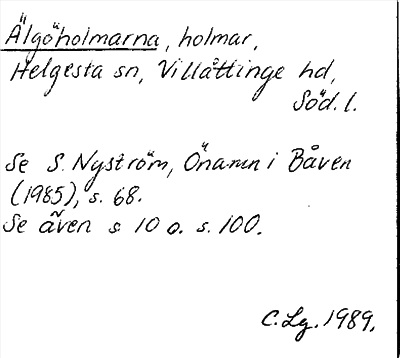 Älgöholmarna, holmar,
Helgesta sn, Villåttinge hd,
Söd. l.
Se S. Nyström, Önamn i Båven
(1985), s. 68.
Se även s. 10 o. s. 100.
C. Lg. 1989.